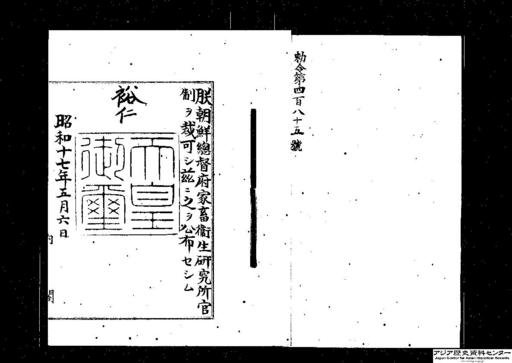 勅令第四百八十五號
朕朝鮮總督府家畜衞生硏究所官
制ヲ裁可シ玆ニ之ヲ公布セシム
裕仁
天皇御璽
昭和十七年五月六日
内閣
アジア歴史資料センター
Japan Center for Asian Historical Records